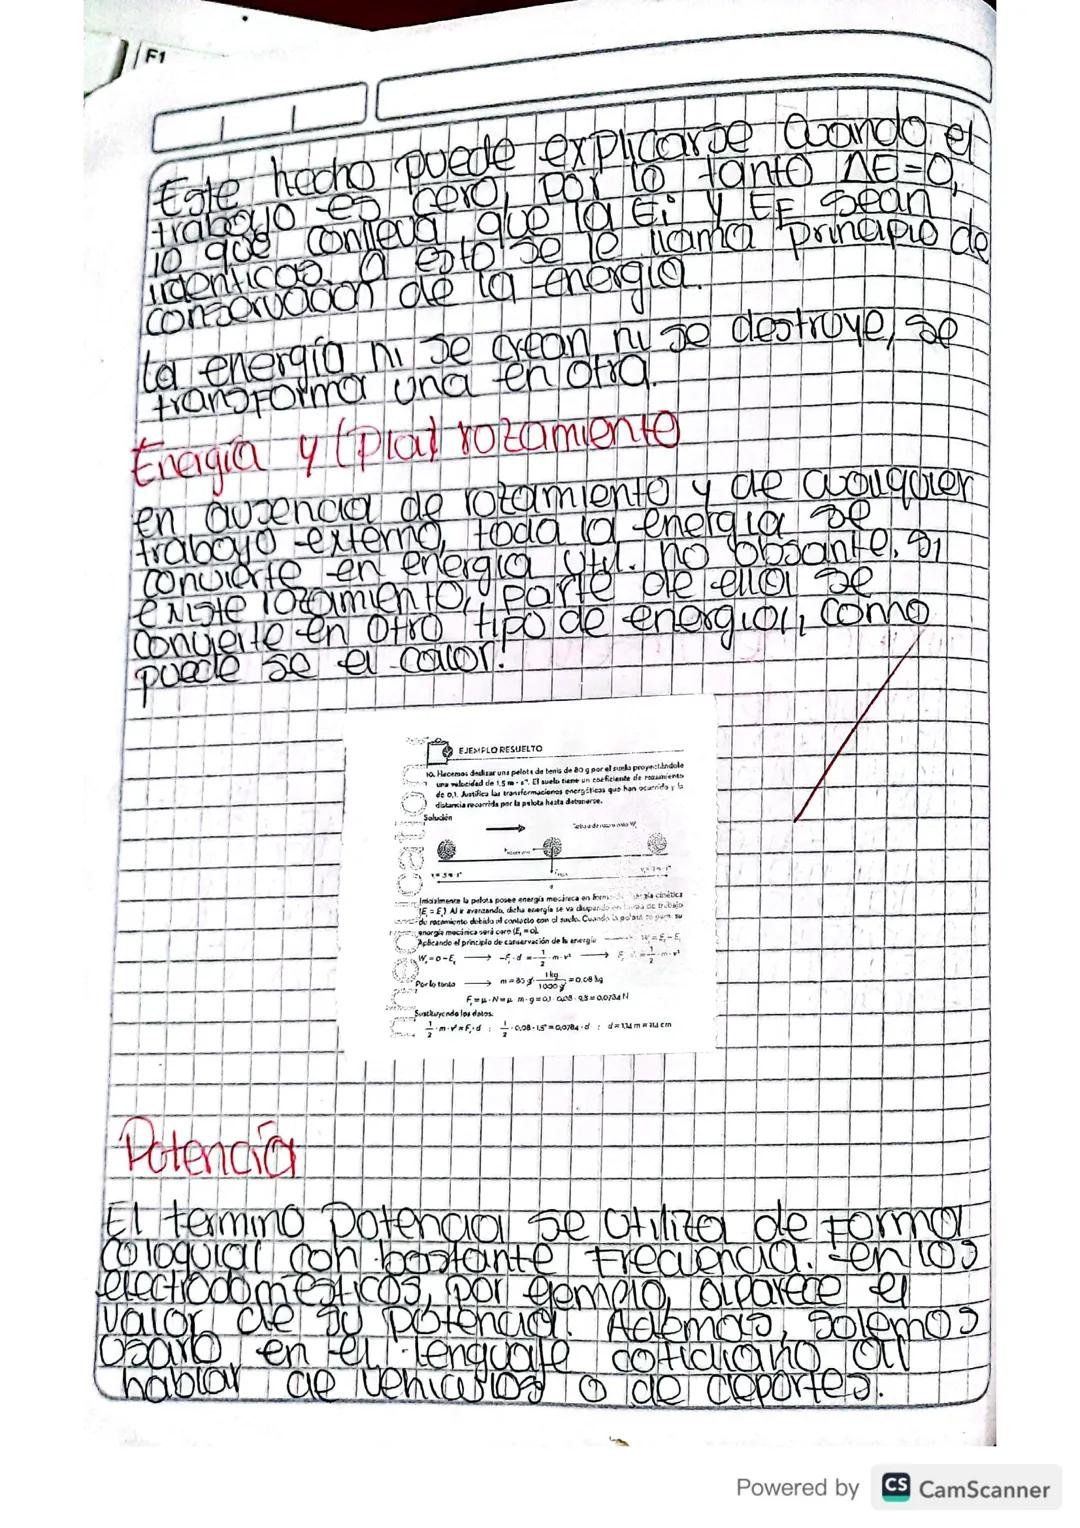 F1
Este hecho puede explicarse cuando el
trabajo es cero, por lo tanto ΔE=0,
lo que conlleva que la Ei y EF sean
identicas. a esto se le llama principio de
conservacion de la energia.
La energía ni se crean ni se destruye, se
transforma una en otra.
Energía y rozamiento
en ausencia de rozamiento y de cualquier
trabajo externo, toda la energia se
convierte en energia util. no obsante, si
existe rozamiento, parte de ella se
convierte en otro tipo de energia, como
puede se el calor.
EJEMPLO RESUELTO
10. Hacemos deslizar una pelota de tenis de 80 g por el suelo proyectándole
una velocidad de 1,5 m · s⁻¹. El suelo tiene un coeficiente de rozamiento
de 0,1. Justifica las transformaciones energéticas que han ocurrido y la
distancia recorrida por la pelota hasta detenerse.
Solución
d
Inicialmente la pelota posee energía mecánica en forma de energía cinética
Al ir avanzando, dicha energía se va disipando en forma de trabajo
de rozamiento debido al contacto con el suelo. Cuando la pelota se pare su
energía mecánica será cero
Aplicando el principio de conservación de la energía
Por lo tanto m = 80 g · 1 kg / 1000 g = 0,08 kg
F = μ · N = μ · m · g = 0,1 · 0,08 · 9,8 = 0,0784 N
Sustituyendo los datos:
1/2 · m · v² = F · d ; 1/2 · 0,08 · 1,5² = 0,0784 · d ;
Potencia
El termino potencia se utiliza de forma
coloquial con bastante frecuencia. en los
electrodomésticos, por ejemplo, aparece el
valor de su potencia. Además, solemos
usarlo en el lenguaje cotidiano al
hablar de vehiculos o de deportes.
Powered by CS CamScanner